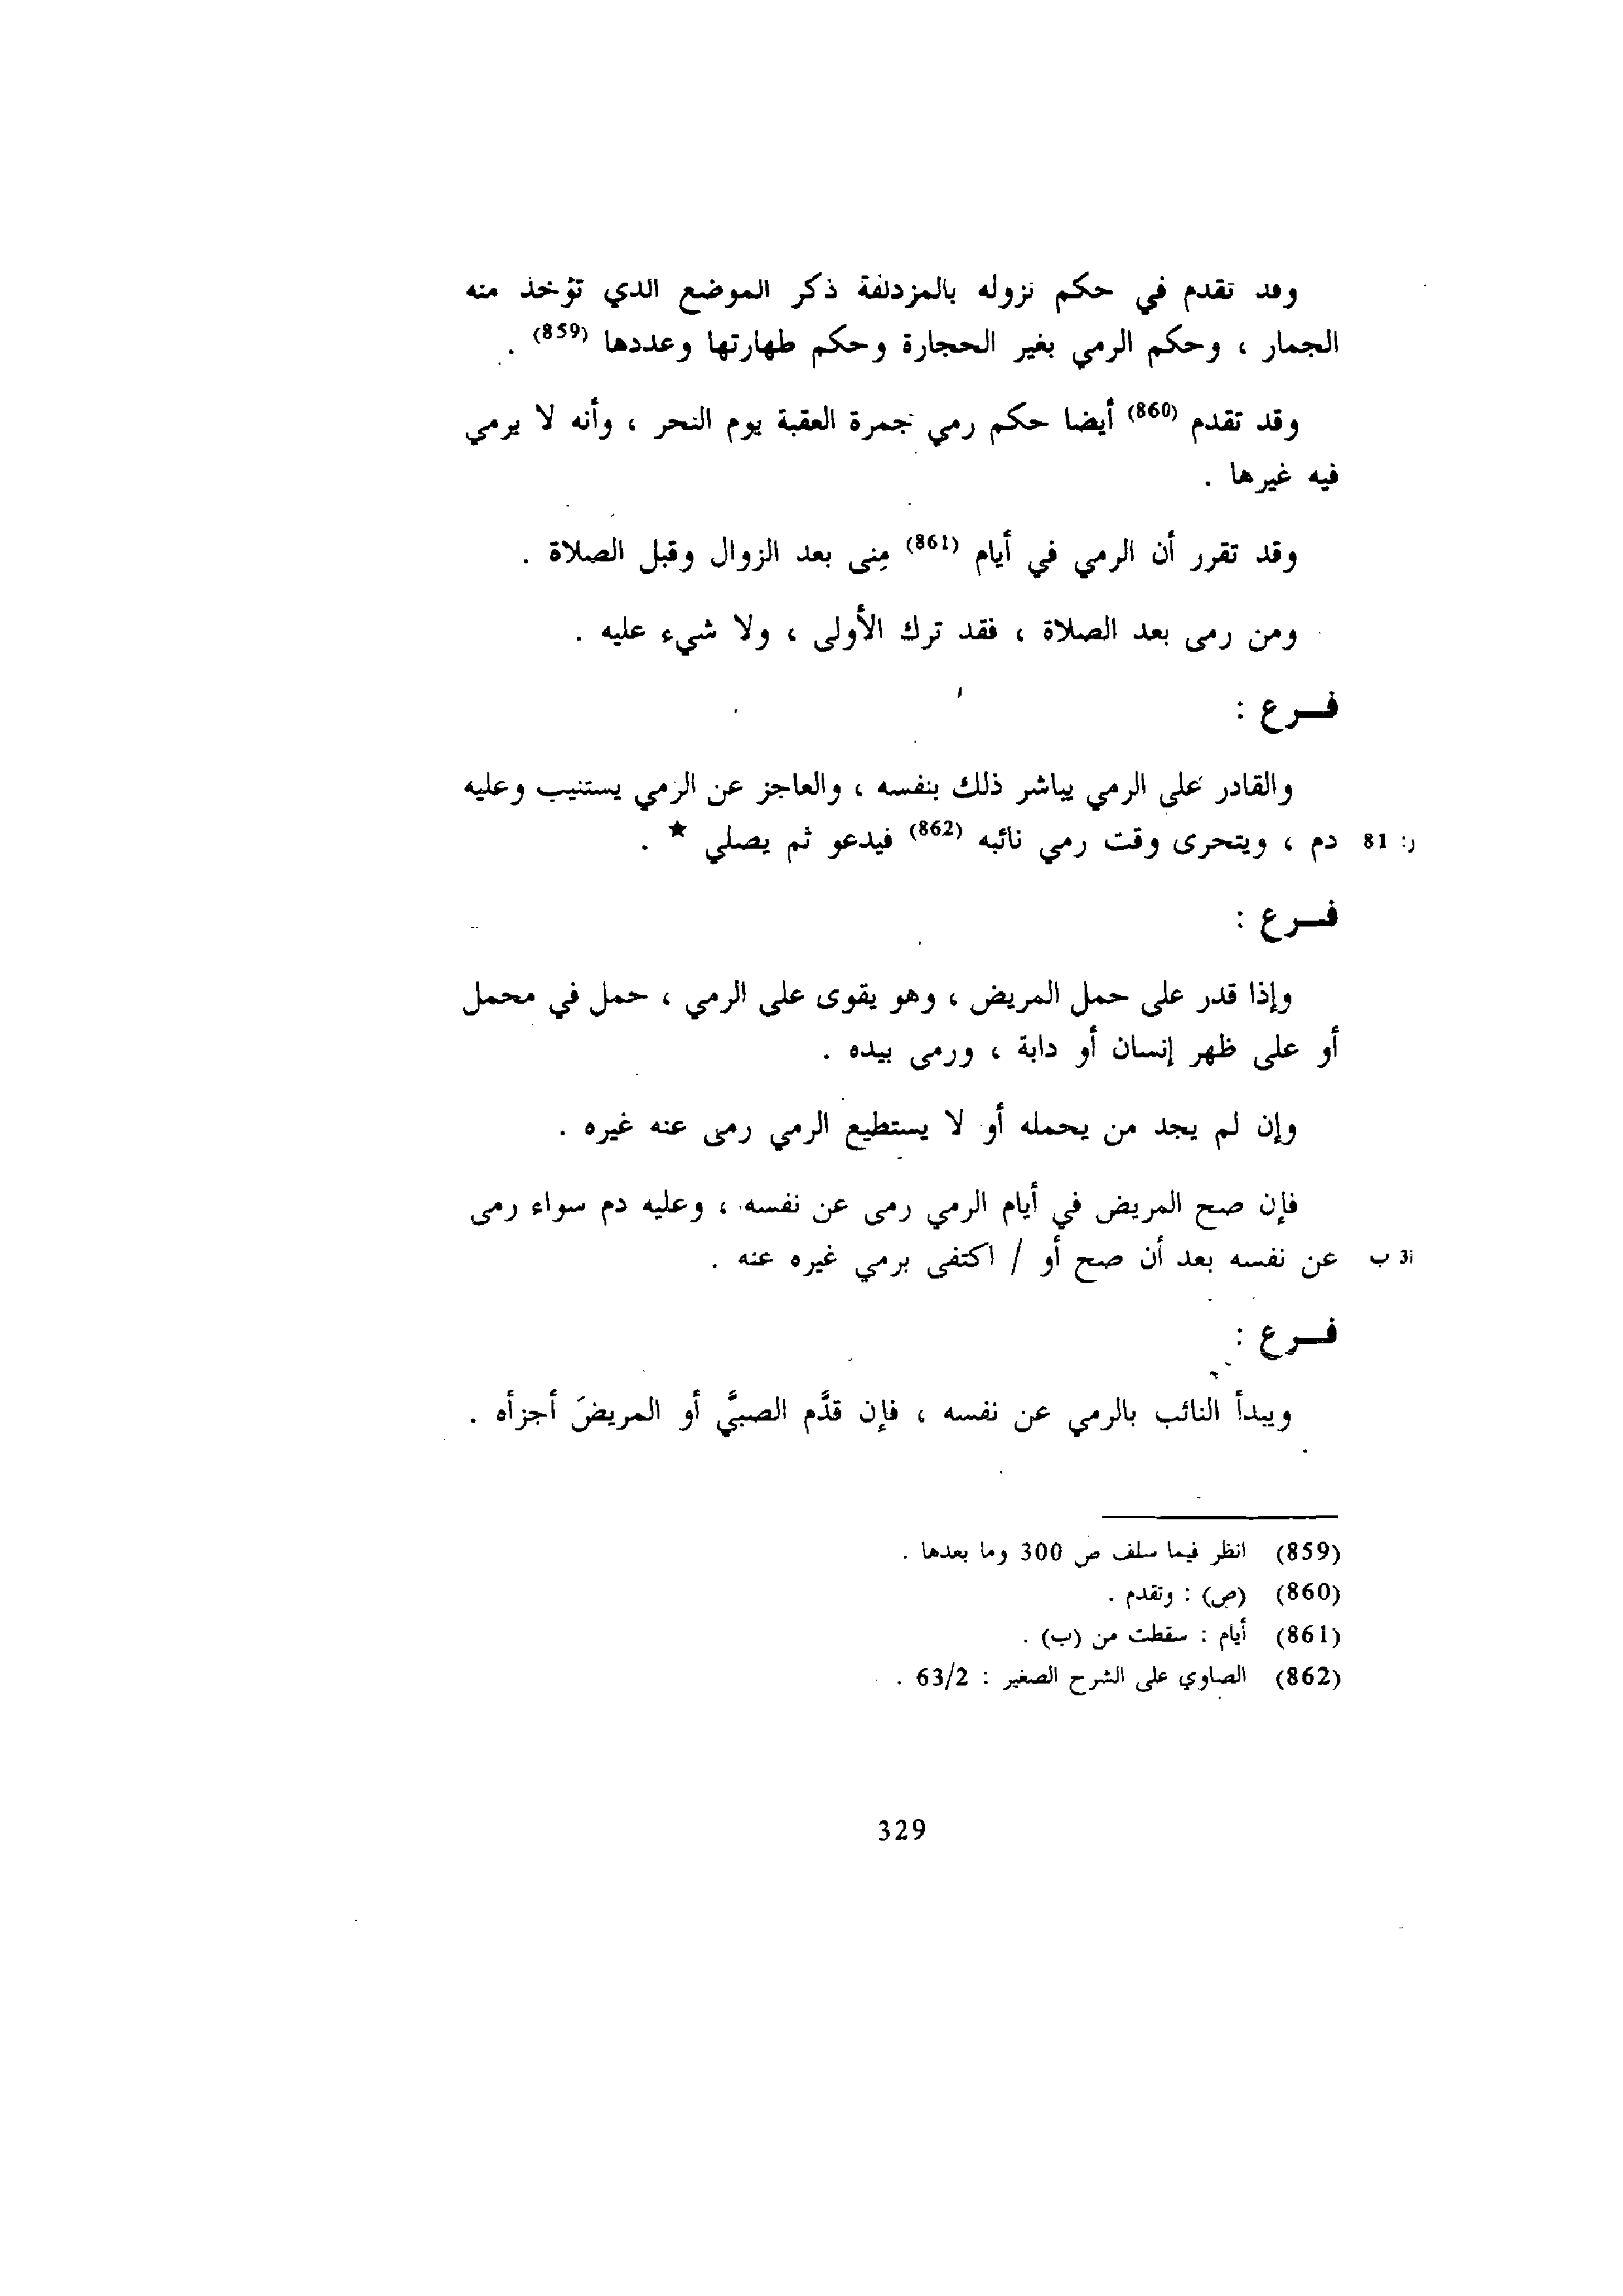 وقد تقدم في حكم نزوله بالمزدلفة ذكر الموضع الذي تؤخذ منه
الجمار ، وحكم الرمي بغير الحجارة وحكم طهارتها وعددها (859) .
وقد تقدم (860) أيضا حكم رمي جمرة العقبة يوم النحر ، وأنه لا يرمي
فيه غيرها .
وقد تقرر أن الرمي في أيام (861) مِنى بعد الزوال وقبل الصلاة .
ومن رمى بعد الصلاة ، فقد ترك الأولى ، ولا شيء عليه .
فــرع :
والقادر على الرمي يباشر ذلك بنفسه ، والعاجز عن الرمي يستنيب وعليه
ر: 81 دم ، ويتحرى وقت رمي نائبه (862) فيدعو ثم يصلي ★ .
فــرع :
وإذا قدر على حمل المريض ، وهو يقوى على الرمي ، حمل في محمل
أو على ظهر إنسان أو دابة ، ورمى بيده .
وإن لم يجد من يحمله أو لا يستطيع الرمي رمى عنه غيره .
فإن صح المريض في أيام الرمي رمى عن نفسه ، وعليه دم سواء رمى
ب عن نفسه بعد أن صح أو / اكتفى برمي غيره عنه .
فــرع :
ويبدأ النائب بالرمي عن نفسه ، فإن قدَّم الصبيَّ أو المريضَ أجزأه .
(859) انظر فيما سلف ص 300 وما بعدها .
(860) (ص) : وتقدم .
(861) أيام : سقطت من (ب) .
(862) الصاوي على الشرح الصغير : 63/2 .
329